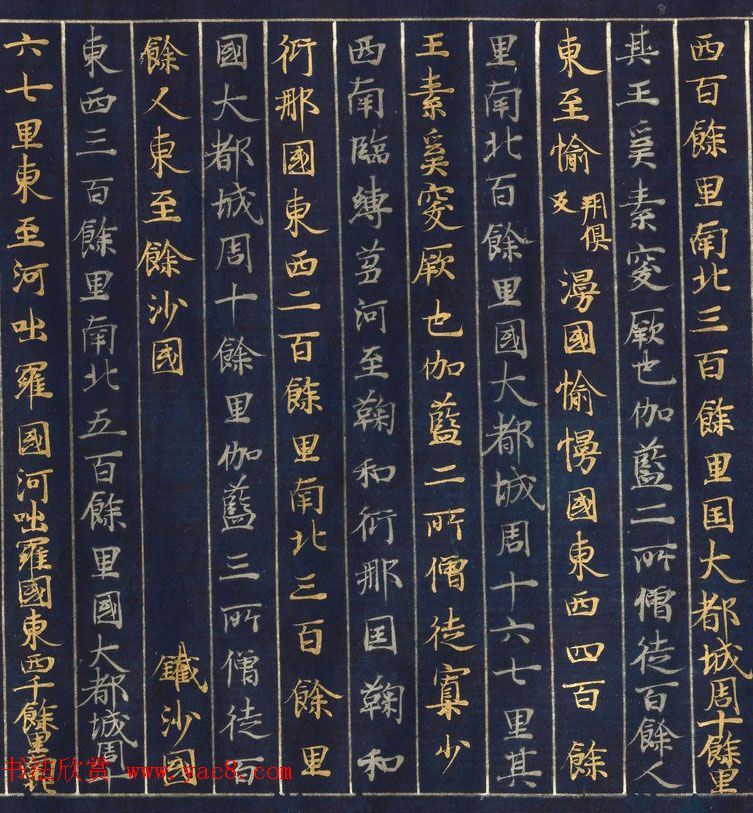 西百餘里南北三百餘里国大都城周十餘里
其王奚素窔厥也伽藍二所僧徒百餘人
東至愉朔俱反漫國愉慢國東西四百餘
里南北百餘里國大都城周十六七里其
王素奚窔厥也伽藍二所僧徒寡少
西南臨縛芻河至鞠和衍那国鞠和
衍那國東西二百餘里南北三百餘里
國大都城周十餘里伽藍三所僧徒百
餘人東至餘沙國 鑯沙國
東西三百餘里南北五百餘里國大都城周
六七里東至河咄羅國河咄羅國東西千餘里南北
书法欣赏 www.yac8.com